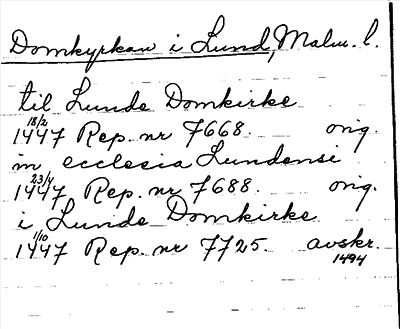 Domkyrkan i Lund, Malm. l.
til Lunde Domkirke
18/2
1447 Rep. nr 7668. orig.
in ecclesia Lundensi
23/4
1447 Rep. nr 7688. orig.
i Lunde Domkirke
1/10
1447 Rep. nr 7725. avskr.
1494